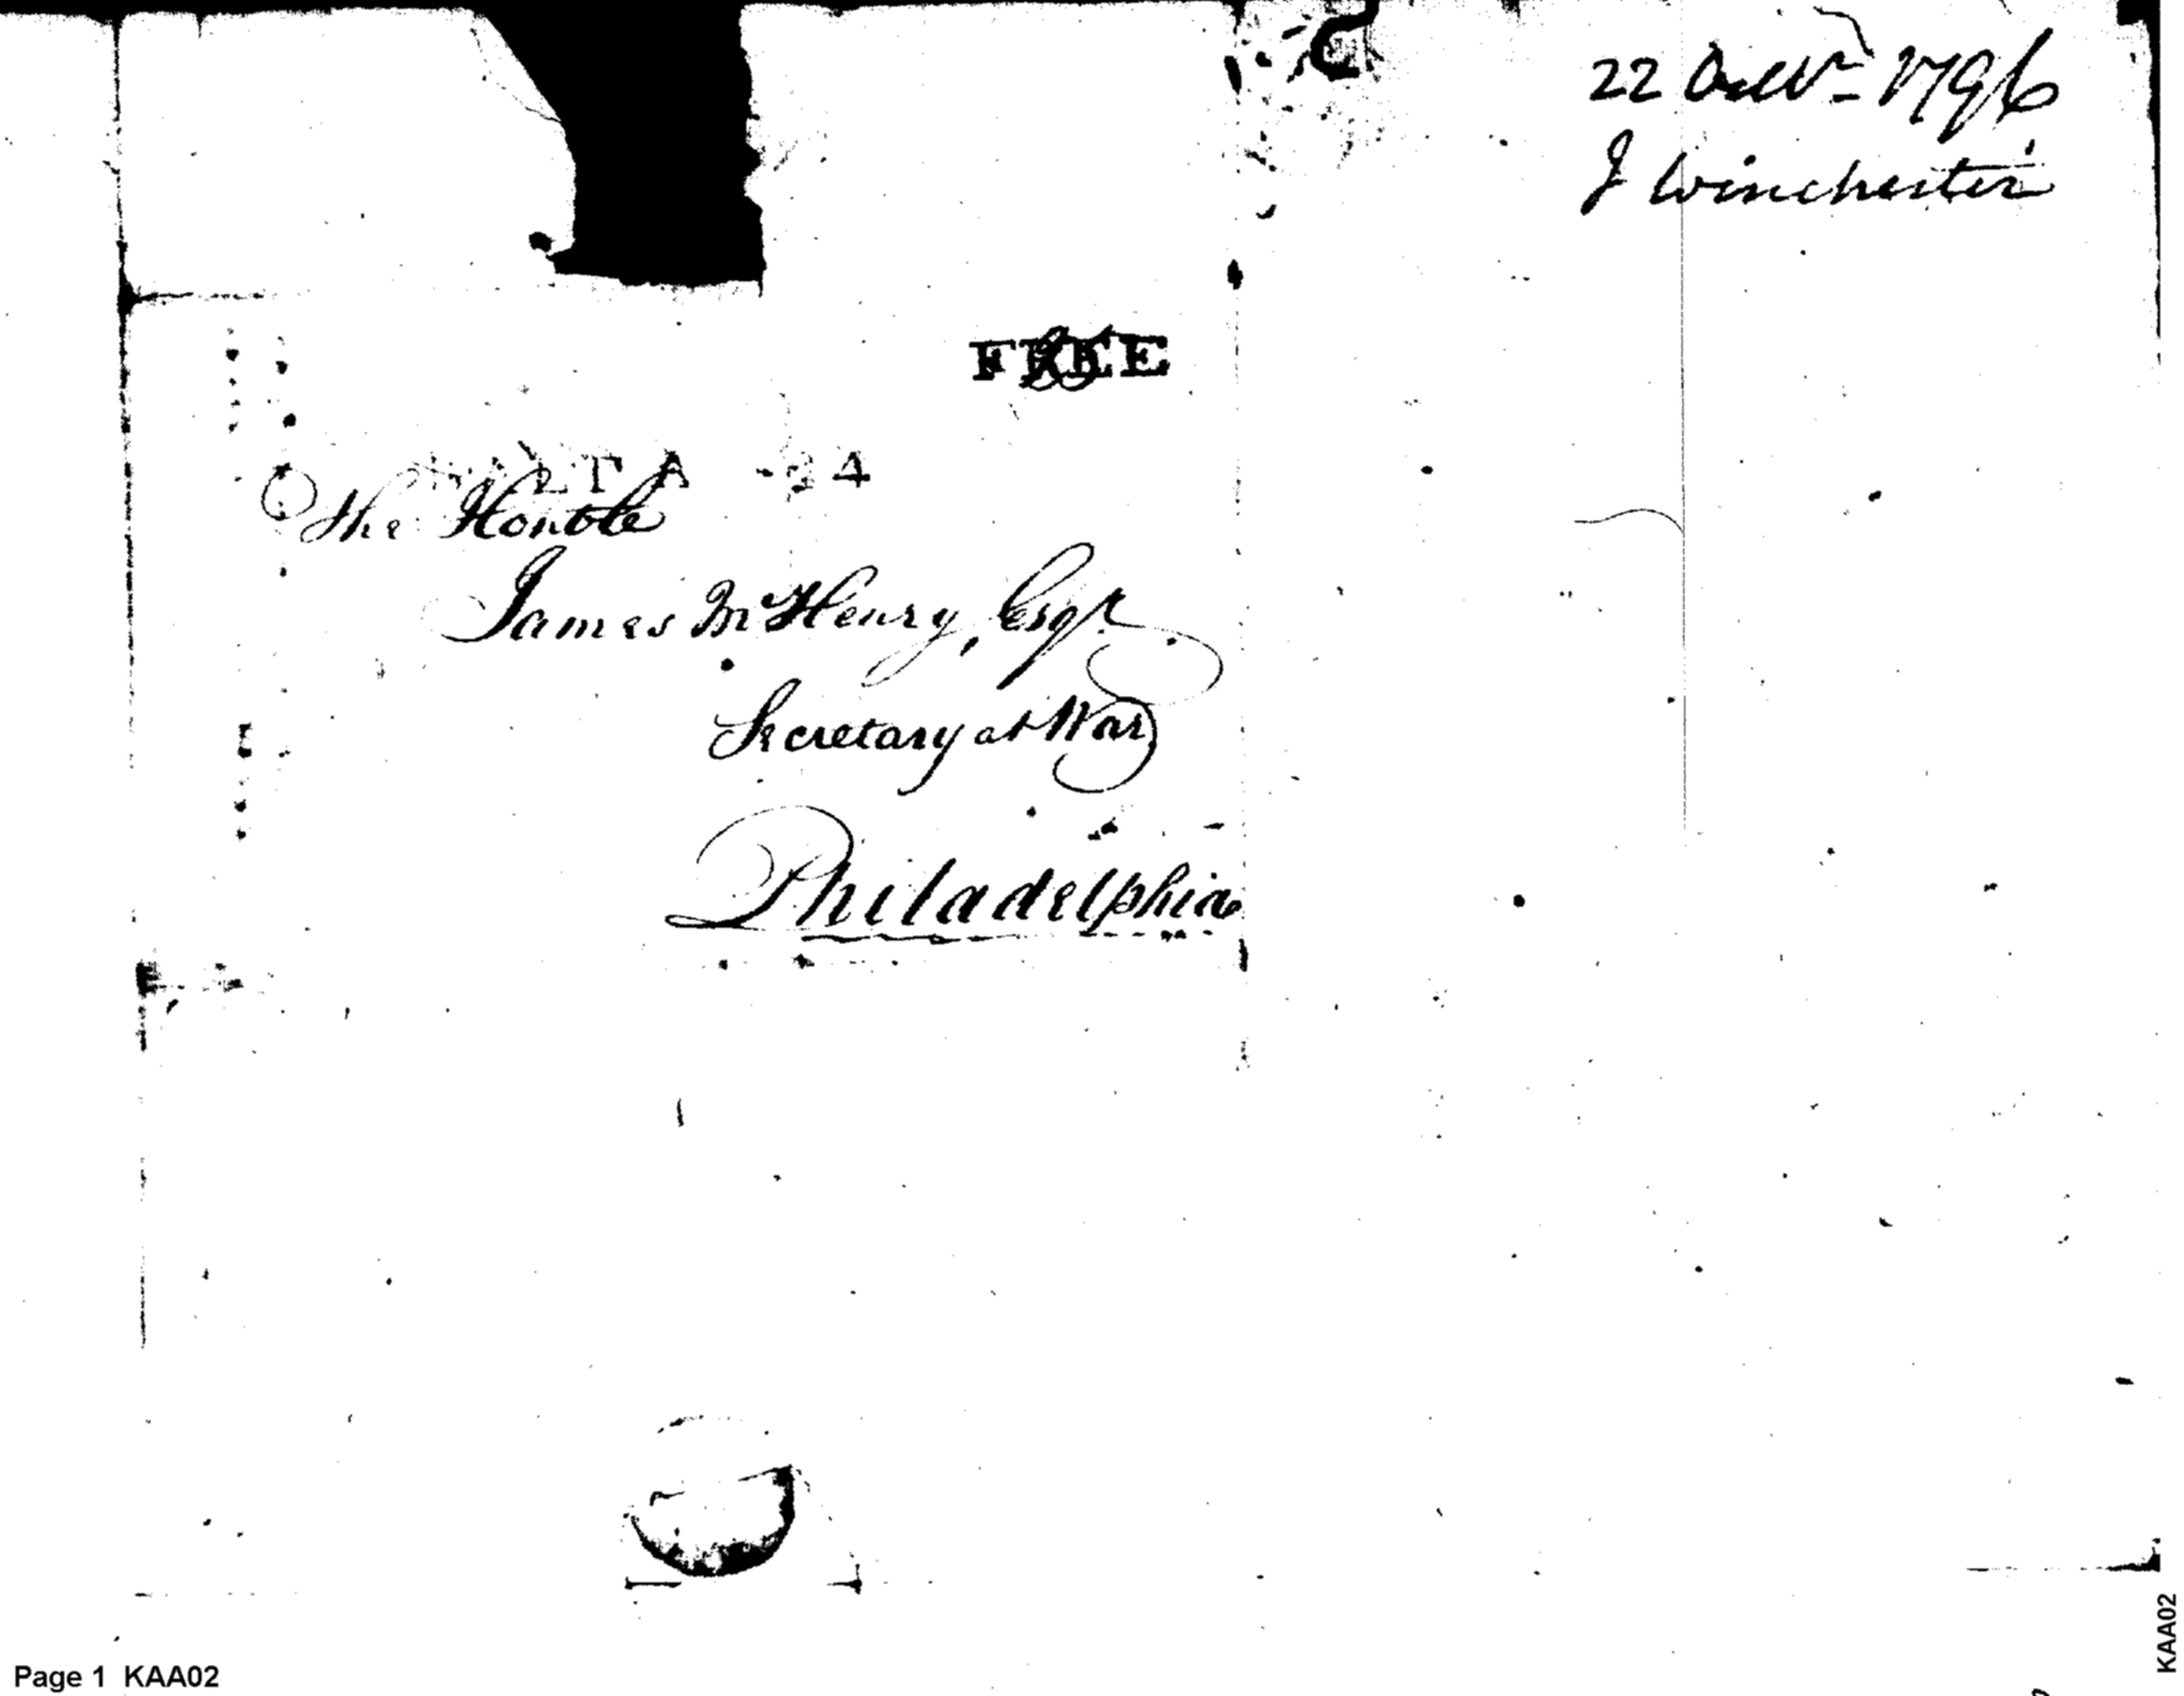 22 Octbr - 1796
J Winchester
FREE
24
The Honble
James McHenry, Esqr.
Secretary at War
Philadelphia
Page 1 KAA02
KAA02